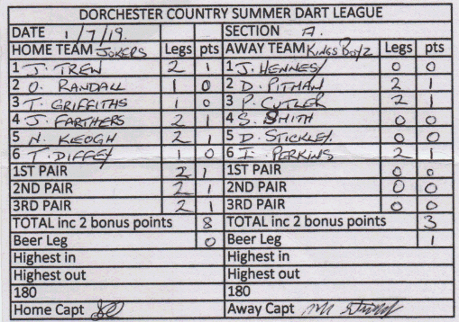 DORCHESTER COUNTRY SUMMER DART LEAGUE
DATE 1/7/19. SECTION A.
HOME TEAM JOKERS Legs pts AWAY TEAM KINGS BOYZ Legs pts
1 J. TREW 2 1 1 J. HENNESY 0 0
2 O. RANDALL 1 0 2 D. PITMAN 2 1
3 T. GRIFFITHS 1 0 3 P. CUTLER 2 1
4 J. FARTHERS 2 1 4 S. SMITH 0 0
5 N. KEOGH 2 1 5 D. STICKLEY 0 0
6 T. DIFFEY 1 0 6 I. PERKINS 2 1
1ST PAIR 2 1 1ST PAIR 0 0
2ND PAIR 2 1 2ND PAIR 0 0
3RD PAIR 2 1 3RD PAIR 0 0
TOTAL inc 2 bonus points 8 TOTAL inc 2 bonus points 3
Beer Leg 0 Beer Leg 1
Highest in Highest in
Highest out Highest out
180 180
Home Capt Away Capt